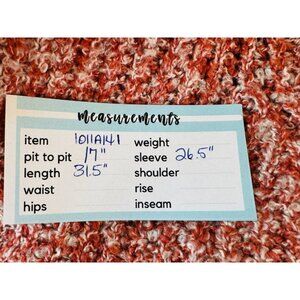 measurements
item 1011A141 weight
pit to pit 17" sleeve 26.5"
length 31.5" shoulder
waist rise
hips inseam